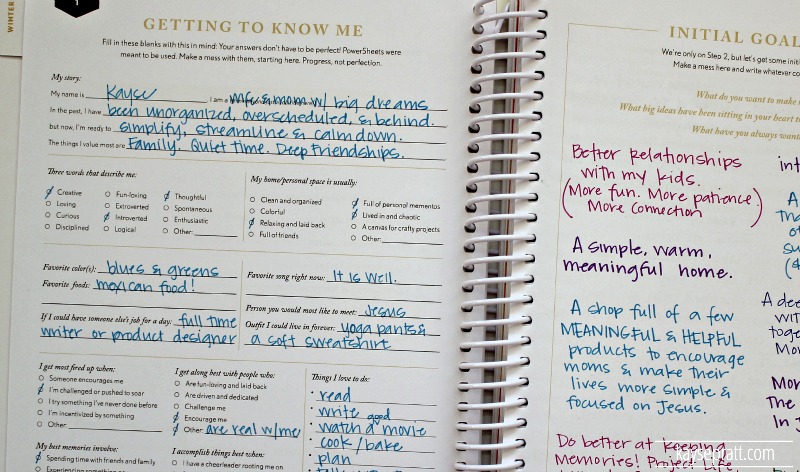 WINTER
1
GETTING TO KNOW ME
Fill in these blanks with this in mind: Your answers don't have to be perfect! PowerSheets were
meant to be used. Make a mess with them, starting here. Progress, not perfection.
My story:
My name is Kayse I am a wife & mom w/ big dreams
In the past, I have been unorganized, overscheduled, & behind.
but now, I'm ready to simplify, streamline & calm down.
The things I value most are Family. Quiet time. Deep friendships.
Three words that describe me:
Creative Fun-loving Thoughtful
Loving Extroverted Spontaneous
Curious Introverted Enthusiastic
Disciplined Logical Other:
My home/personal space is usually:
Clean and organized Full of personal mementos
Colorful Lived in and chaotic
Relaxing and laid back A canvas for crafty projects
Full of friends Other:
Favorite color(s): blues & greens
Favorite foods: mexican food!
If I could have someone else's job for a day: full time
writer or product designer
Favorite song right now: It is Well.
Person you would most like to meet: Jesus
Outfit I could live in forever: yoga pants &
a soft sweatshirt
I get most fired up when:
Someone encourages me
I'm challenged or pushed to soar
I try something I've never done before
I'm incentivized by something
Other:
My best memories involve:
Spending time with friends and family
Experiencing something
I get along best with people who:
Are fun-loving and laid back
Are driven and dedicated
Challenge me
Encourage me
Other: are real w/me
I accomplish things best when:
I have a cheerleader rooting me on
Things I love to do:
read
write
watch a good movie
cook/bake
plan
INITIAL GOAL
We're only on Step 2, but let's get some initi
Make a mess here and write whatever co
What do you want to make
What big ideas have been sitting in your heart
What have you always want
Better Relationships
with my kids.
(More fun. More patience.
More connection)
A simple, warm,
meaningful home.
A shop full of a few
MEANINGFUL & HELPFUL
products to encourage
moms & make their
lives more simple &
focused on Jesus.
Do better at keeping
Memories! Project Life
int
A dee
wit
toge
Mor
Mor
The
In J
kaysepratt.com